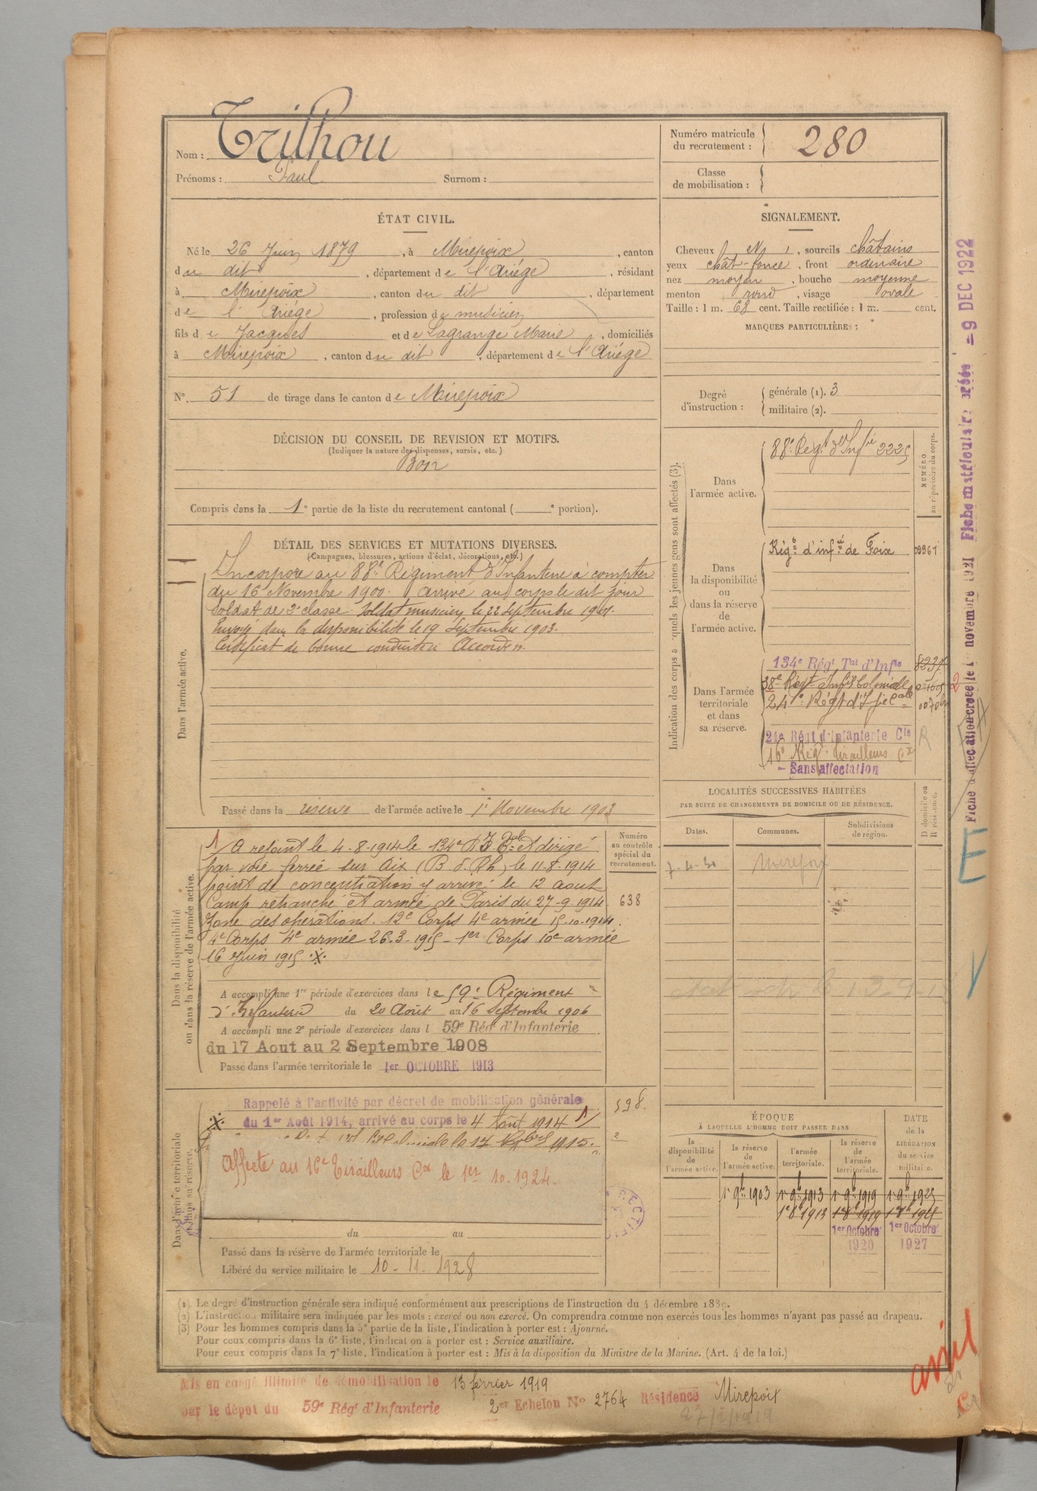 Nom : Trilhou
Prénoms : Paul Surnom :
Numéro matricule du recrutement : 280
Classe de mobilisation :
ÉTAT CIVIL.
Né le 26 Juin 1879, à Mirepoix, canton
du dit, département de l'Ariége, résidant
à Mirepoix, canton du dit, département
de l'Ariége, profession de musicien
fils de Jacques et de Lagrange Marie, domiciliés
à Mirepoix, canton du dit, département de l'Ariége
N° 51 de tirage dans le canton de Mirepoix
DÉCISION DU CONSEIL DE REVISION ET MOTIFS.
(Indiquer la nature des dispenses, sursis, etc.)
Bon
Compris dans la 1e partie de la liste du recrutement cantonal ( e portion).
SIGNALEMENT.
Cheveux , sourcils châtains
yeux chât-foncé, front ordinaire
nez moyen, bouche moyenne
menton rond, visage ovale
Taille : 1 m. 68 cent. Taille rectifiée : 1 m. cent.
MARQUES PARTICULIÈRES :
Degré d'instruction : générale (1). 3
militaire (2).
DÉTAIL DES SERVICES ET MUTATIONS DIVERSES.
(Campagnes, blessures, actions d'éclat, décorations, etc.)
Dans l'armée active.
Incorporé au 88e Régiment d'Infanterie à compter
du 16 Novembre 1900. arrivé au corps le dit jour
soldat de 2e classe. Soldat musicien le 22 septembre 1901.
Envoyé dans la disponibilité le 19 Septembre 1903.
Certificat de bonne conduite Accordé.
Passé dans la réserve de l'armée active le 1er Novembre 1903
Indication des corps auxquels les jeunes gens sont affectés (3).
NUMÉRO au répertoire du corps.
Dans l'armée active.
88e Régt d'Infie 2225
Dans la disponibilité ou dans la réserve de l'armée active.
Régt d'infie de Foix
Dans l'armée territoriale et dans sa réserve.
134e Régt Tal d'Infie
38e Régt d'Inf Coloniale
24e Régt d'Ifie Cale
24e Régt d'Infanterie Cle
16e Régt Tirailleurs Cx
Sans affectation
Dans la disponibilité ou dans la réserve de l'armée active.
A rejoint le 4-8-1914 le 134e et dirigé
par voie ferrée sur Aix (B. d. Rh) le 11-8-1914
point de concentration y arrivé le 12 aout
Camp retranché et armée de Paris du 27-9-1914
Zone des opérations. 12e Corps 4e armée 15-10-1914.
4e Corps 4e armée 26-3-1915 - 1er Corps 10e armée
16 Juin 1915
Numéro au contrôle spécial du recrutement.
638
A accompli une 1re période d'exercices dans le 59e Régiment
d'Infanterie du 20 Août au 16 Septembre 1906
A accompli une 2e période d'exercices dans l 59e Rég d'Infanterie
du 17 Aout au 2 Septembre 1908
Passé dans l'armée territoriale le 1er OCTOBRE 1913
LOCALITÉS SUCCESSIVES HABITÉES
PAR SUITE DE CHANGEMENTS DE DOMICILE OU DE RÉSIDENCE.
D domicile ou R résidence.
Dates. Communes. Subdivisions de région.
Mirepoix
Rappelé à l'activité par décret de mobilisation générale
du 1er Août 1914, arrivé au corps le 4 Août 1914
Affecté au 16e Tirailleurs Cx le 1er 10. 1924.
du au
Passé dans la réserve de l'armée territoriale le
Libéré du service militaire le 10-11-1928
ÉPOQUE
À LAQUELLE L'HOMME DOIT PASSER DANS
DATE de la LIBÉRATION du service militaire.
la disponibilité de l'armée active. la réserve de l'armée active. l'armée territoriale. la réserve de l'armée territoriale.
1er 9bre 1903 1er 9bre 1913 1er 9bre 1919 1er 9bre 1925
1er Octobre 1920 1er Octobre 1927
(1) Le degré d'instruction générale sera indiqué conformément aux prescriptions de l'instruction du 4 décembre 1889.
(2) L'instruction militaire sera indiquée par les mots : exercé ou non exercé. On comprendra comme non exercés tous les hommes n'ayant pas passé au drapeau.
(3) Pour les hommes compris dans la 5e partie de la liste, l'indication à porter est : Ajourné.
Pour ceux compris dans la 6e liste, l'indication à porter est : Service auxiliaire.
Pour ceux compris dans la 7e liste, l'indication à porter est : Mis à la disposition du Ministre de la Marine. (Art. 4 de la loi.)
Mis en congé illimité de démobilisation le 13 fevrier 1919
par le dépôt du 59e Rég d'Infanterie 2er Echelon No 2764 Résidence Mirepoix
- 9 DEC 1922